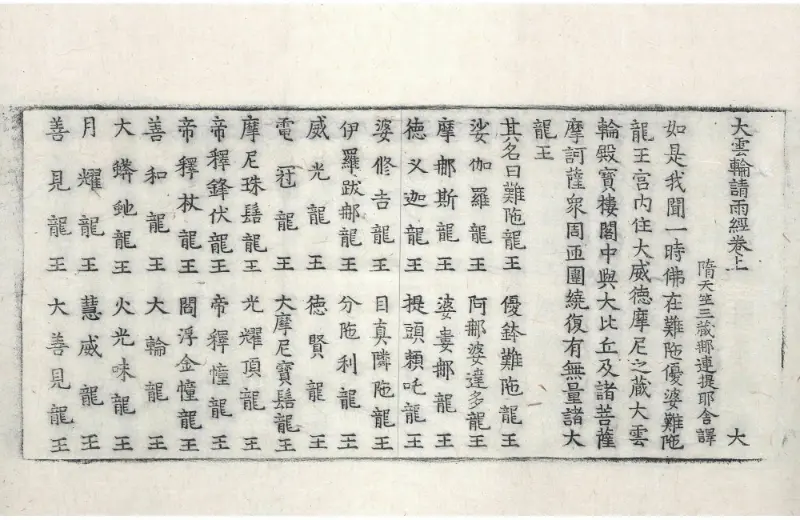 大雲輪請雨經卷上 大
隋天竺三藏那連提耶舍譯
如是我聞一時佛在難陁優婆難陁
龍王宮內住大威德摩尼之藏大雲
輪殿寶樓閣中與大比丘及諸菩薩
摩訶薩衆周迊圍繞復有無量諸大
龍王
其名曰難陁龍王 優鉢難陁龍王
娑伽羅龍王 阿那婆達多龍王
摩那斯龍王 婆婁那龍王
德叉迦龍王 提頭賴吒龍王
婆修吉龍王 目真隣陁龍王
伊羅跋那龍王 分陁利龍王
威光龍王 德賢龍王
電冠龍王 大摩尼寶髻龍王
摩尼珠髻龍王 光耀頂龍王
帝釋鋒伏龍王 帝釋幢龍王
帝釋杖龍王 閻浮金幢龍王
善和龍王 大輪龍王
大蟒虵龍王 火光味龍王
月耀龍王 慧威龍王
善見龍王 大善見龍王